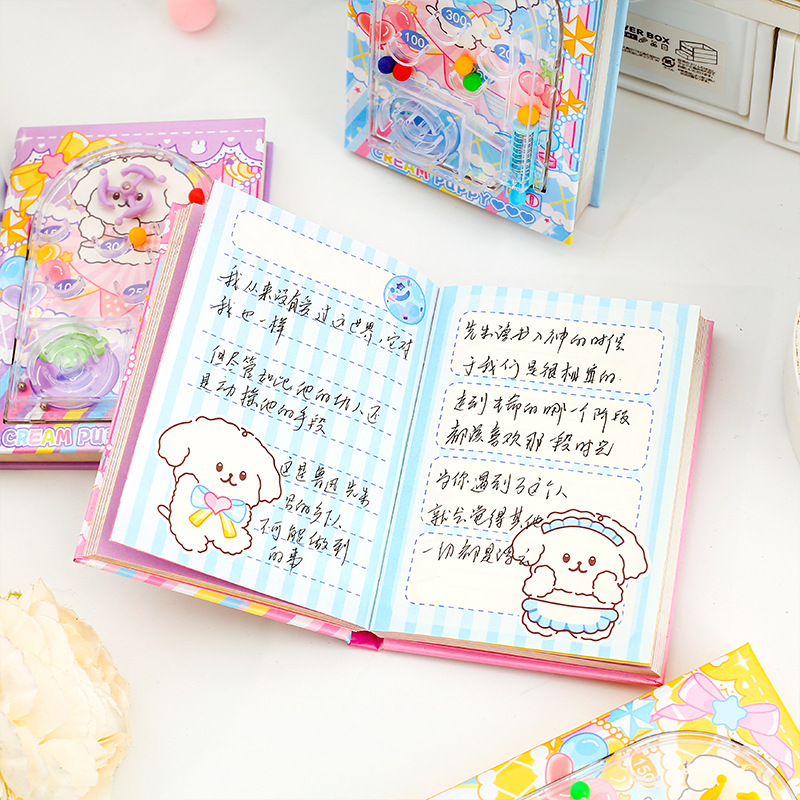 300
100
CREAM PUPPY
30
100
25
CREAM PUPP
我从来没有爱过这世界,它对
我也一样
但尽管如此他的动人还
是动摇他的手段
这是鲁迅先生
另的乡下人
不可能做到
的事
先生读书入神的时候
于我们是很相宜的.
走到生命的哪一个阶段
都该喜欢那段时光
当你遇到了这个人
就会觉得其他
一切都是浮云
150
VER BOX